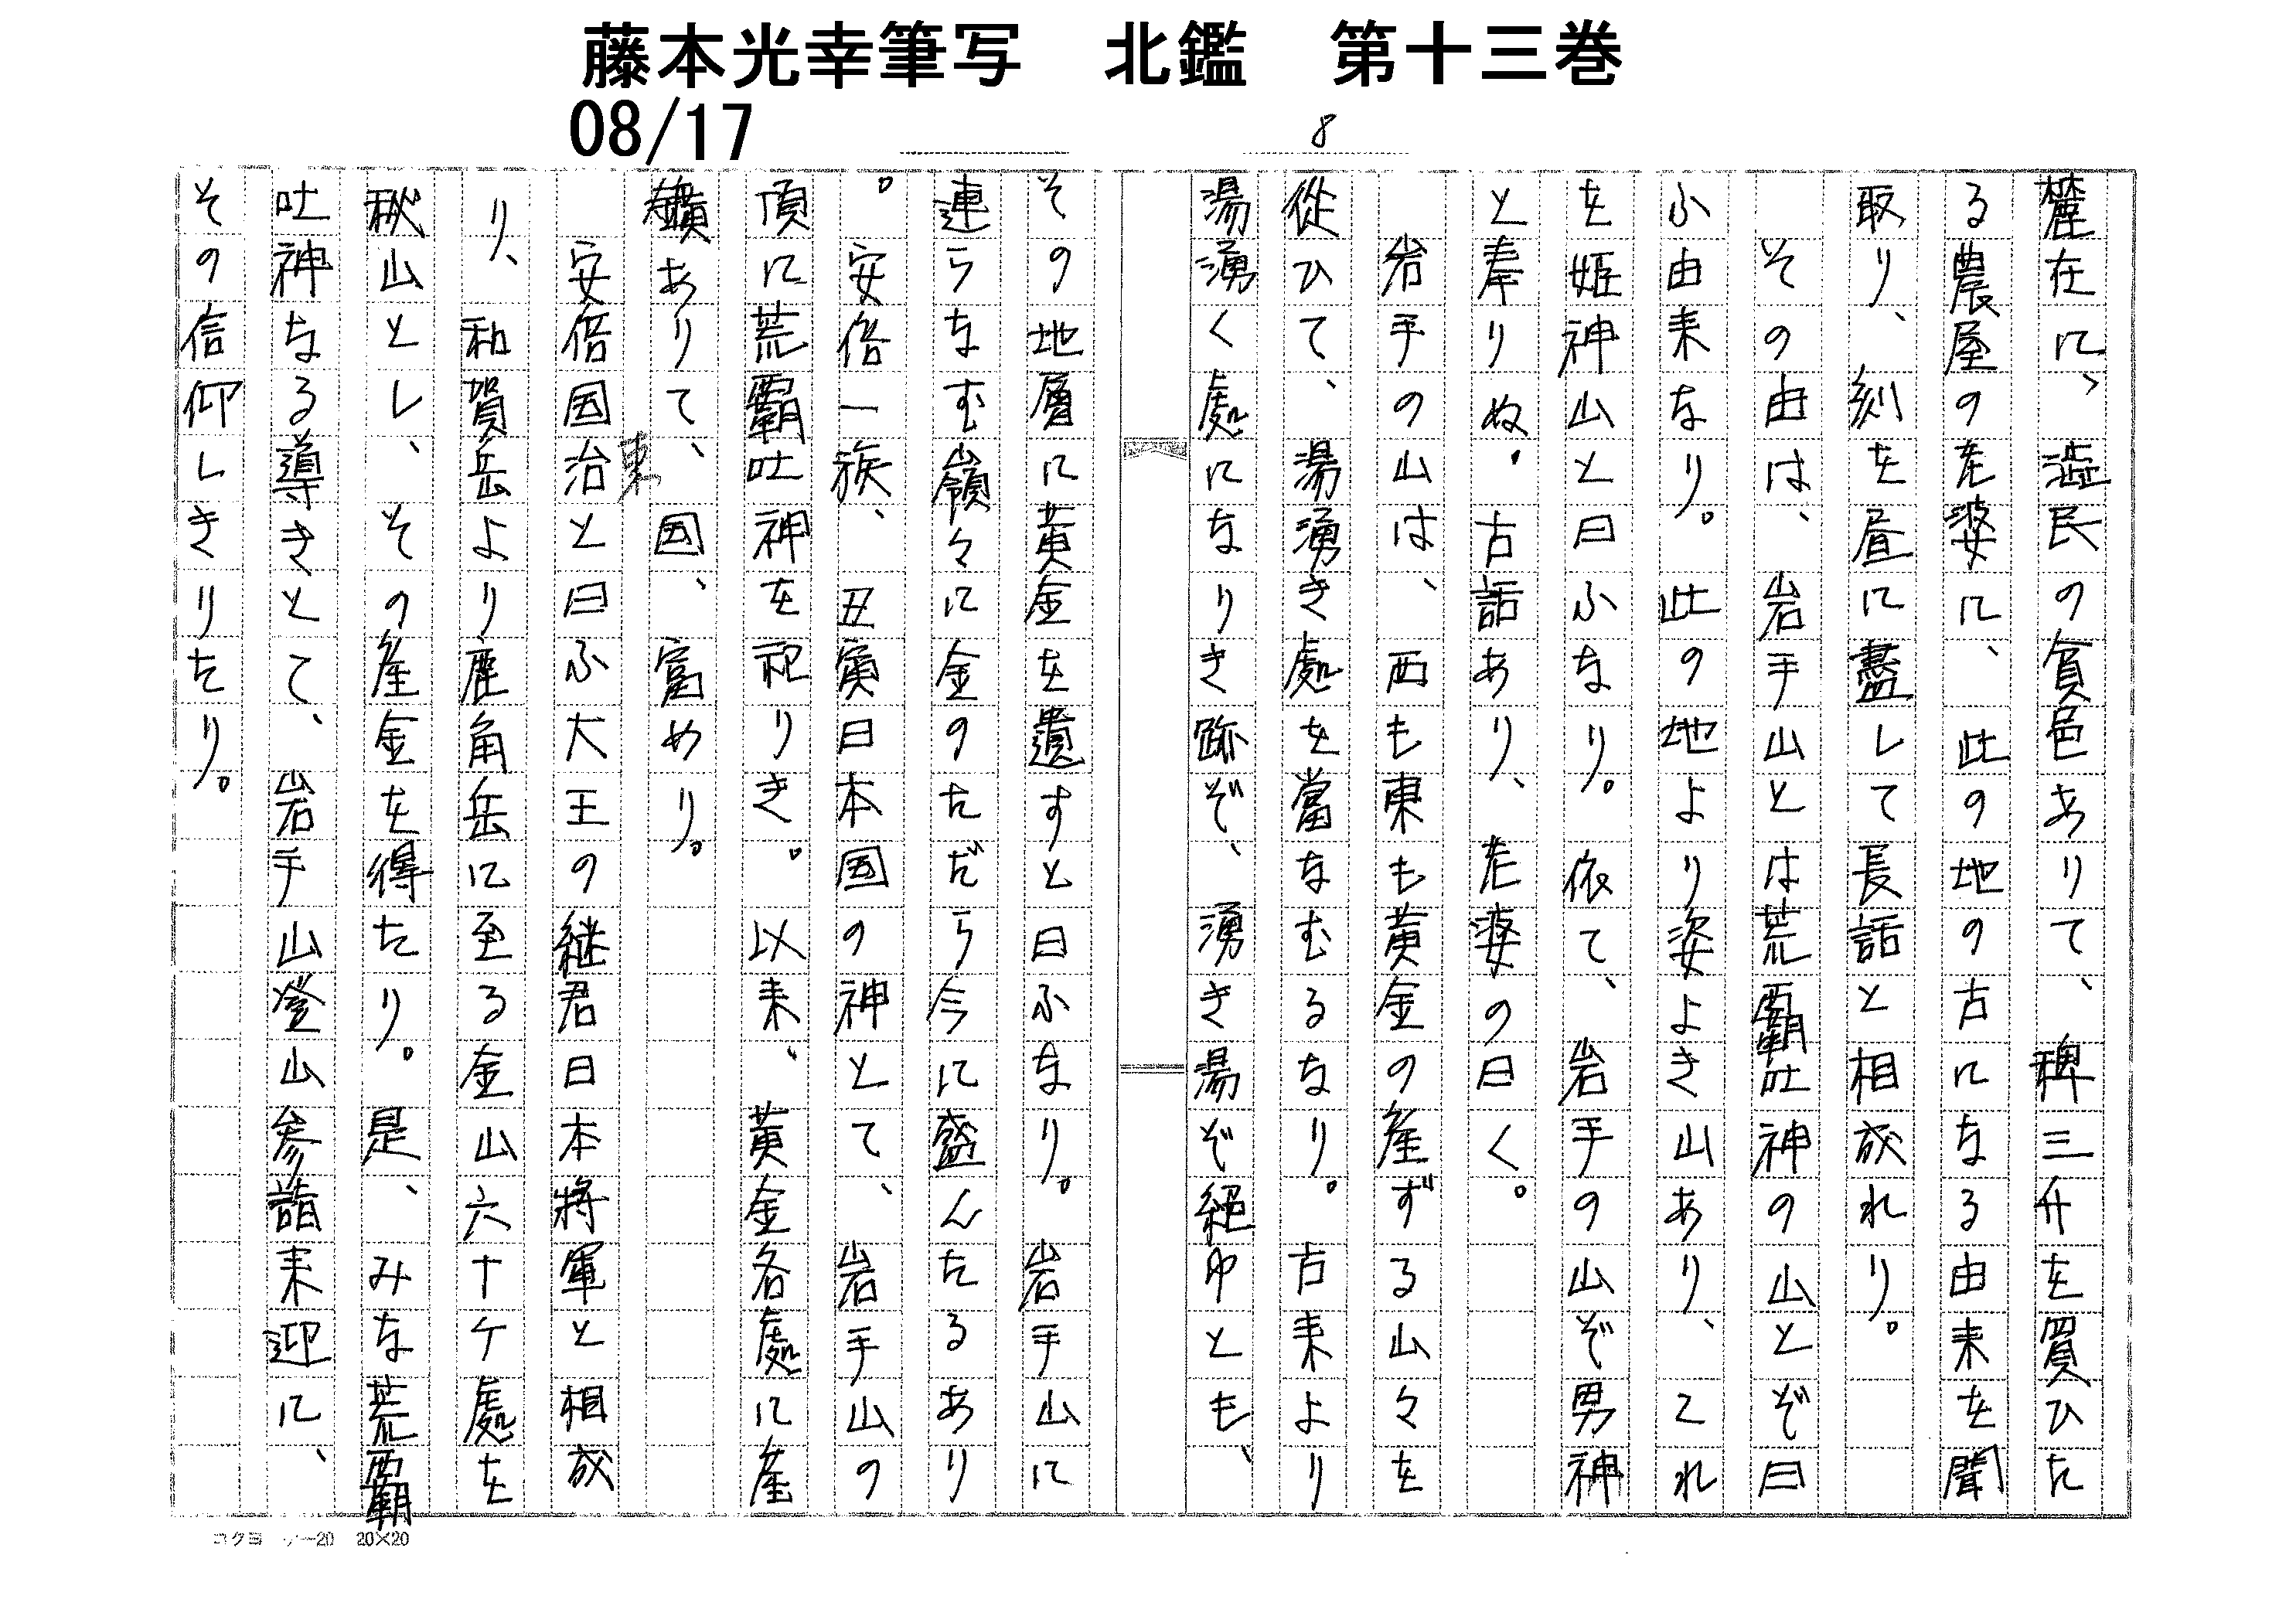 藤本光幸筆写　北鑑　第十三巻
08/17
8
麓在に、澁民の貧邑ありて、稗三升を買ひた
る農屋の老婆に、此の地の古になる由来を聞
取り、刻を昼に盡して長話と相成れり。
その由は、岩手山とは荒覇吐神の山とぞ曰
ふ由来なり。此の地より姿よき山あり、これ
を姫神山と曰ふなり。依て、岩手の山ぞ男神
と奉りぬ。古話あり、老婆の曰く。
岩手の山は、西も東も黄金の産ずる山々を
従ひて、湯湧き處を當なむるなり。古来より
湯湧く處になりき跡ぞ、湧き湯ぞ絕ゆとも、
その地層に黄金を遺すと曰ふなり。岩手山に
連らなむ嶺々に金のただら今に盛んたるあり
。安倍一族、丑寅日本国の神とて、岩手山の
頂に荒覇吐神を祀りき。以来、黄金各處に産
鑛ありて、国、富めり。
安倍国治東と曰ふ大王の継君日本将軍と相成
り、和賀岳より鹿角岳に至る金山六十ケ處を
秋山とし、その産金を得たり。是、みな荒覇
吐神なる導きとて、岩手山登山参詣来迎に、
その信仰しきりたり。
コクヨ　ケー20　20×20